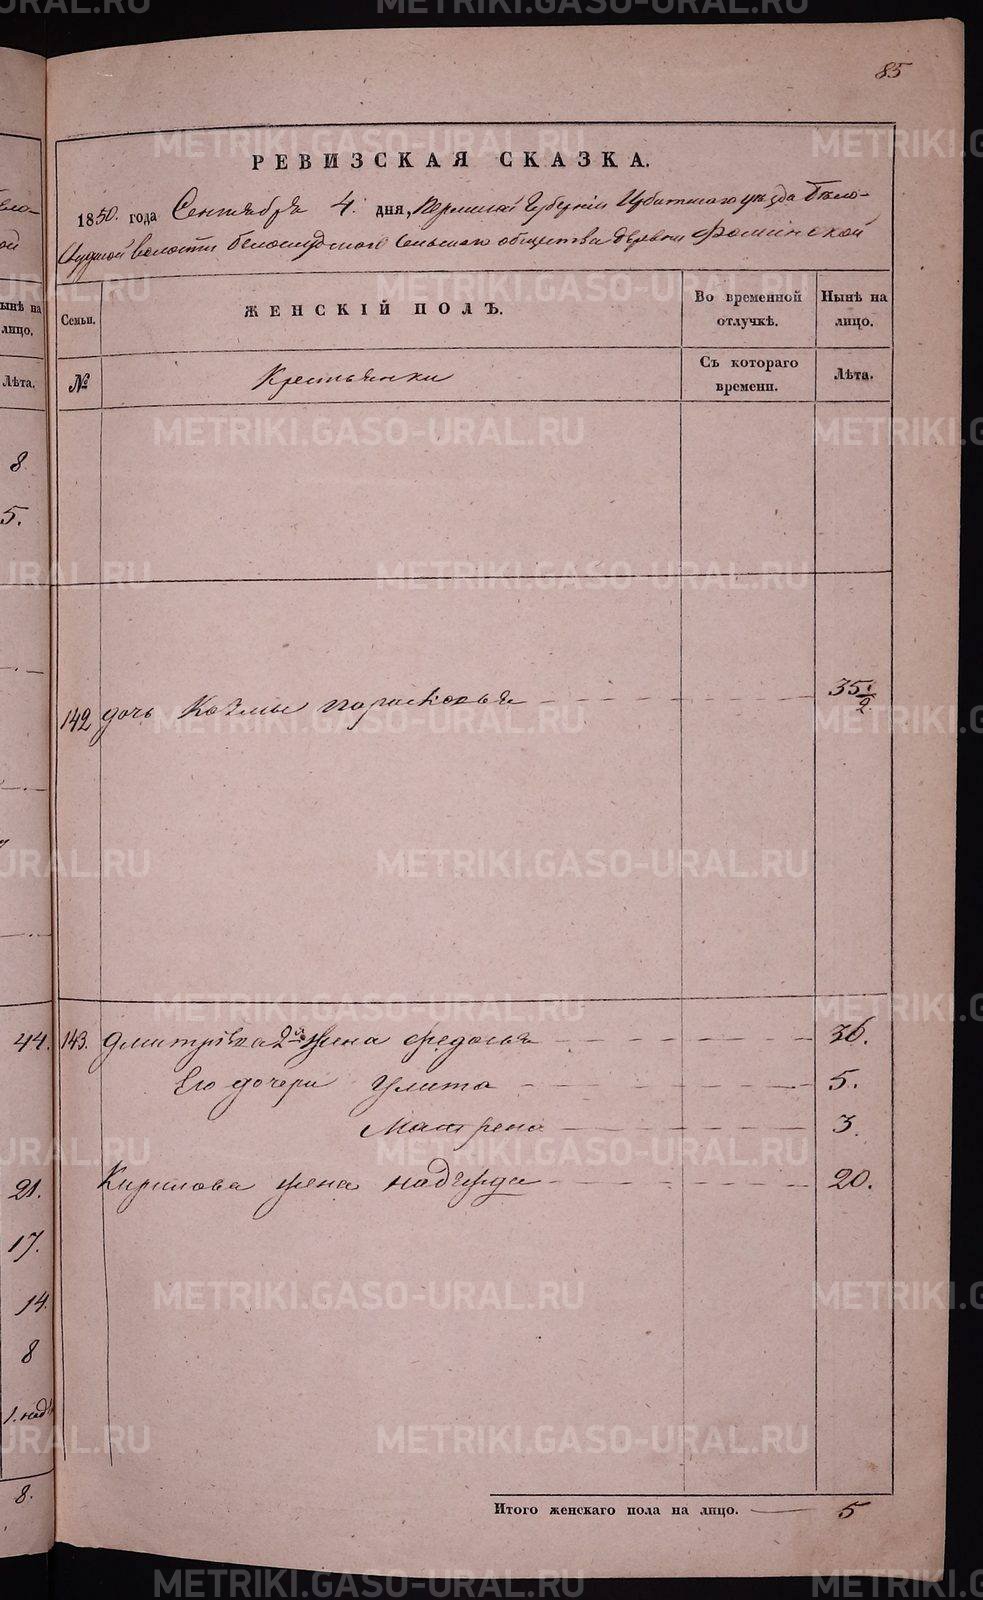 85
РЕВИЗСКАЯ СКАЗКА.
1850. года Сентября 4. дня, Пермской Губернии Ирбитскаго уѣзда Бѣло-
слудской волости Белослудскаго сельскаго общества деревни Фоминской
Семьи. ЖЕНСКІЙ ПОЛЪ. Во временной отлучкѣ. Нынѣ на лицо.
№ Крестьянки Съ котораго времени. Лѣта.
142 дочь Козмы парасковья 35 1/2
143. Дмитріева 2я жена Федосья 36.
Его дочери Улита 5.
Матрена 3.
Кирилова жена надежда 20.
Итого женскаго пола на лицо. 5
ынѣ на
лицо.
Лѣта.
8
5.
44.
21.
17.
14.
8
8.
METRIKI.GASO-URAL.RU